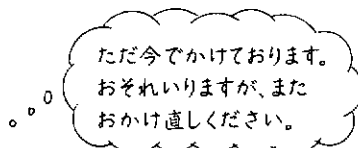 ただ今でかけております。
おそれいりますが、また
おかけ直しください。